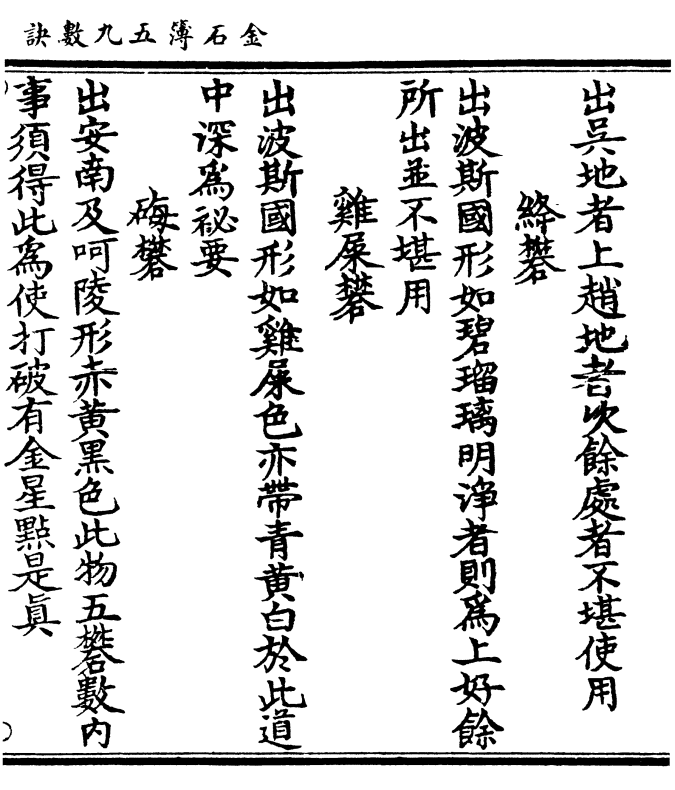 金石簿五九數訣
出吳地者上趙地者次餘處者不堪使用
絳礬
出波斯國形如碧瑠璃明淨者則爲上好餘
所出並不堪用
雞屎礬
出波斯國形如雞屎色亦帶青黄白於此道
中深爲祕要
䃢礬
出安南及呵陵形赤黄黑色此物五礬數内
事須得此爲使打破有金星點是眞